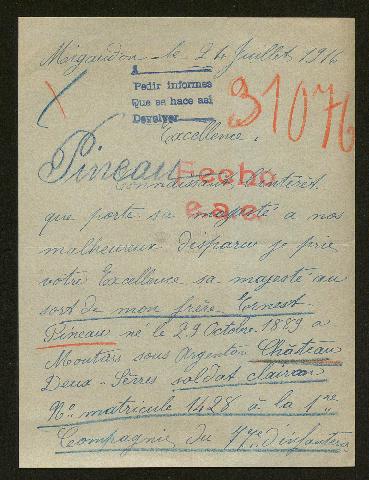 Migaudon le 24 Juillet 1916
A
Pedir informes
Que se hace asi
Devolver
31076
Excellence,
Pineau
Fecho
Connaissant l'intéret
e.a.c.
que porte sa majesté a nos
malheureux disparus je prie
votre Excellence sa majesté au
sort de mon frère Ernest
Pineau né le 29 Octobre 1889 a
Moutiers sous Argenton Château
Deux-Sèvres soldat clairon
No matricule 1428 à la 1re
Compagnie du 7me d'infanterie